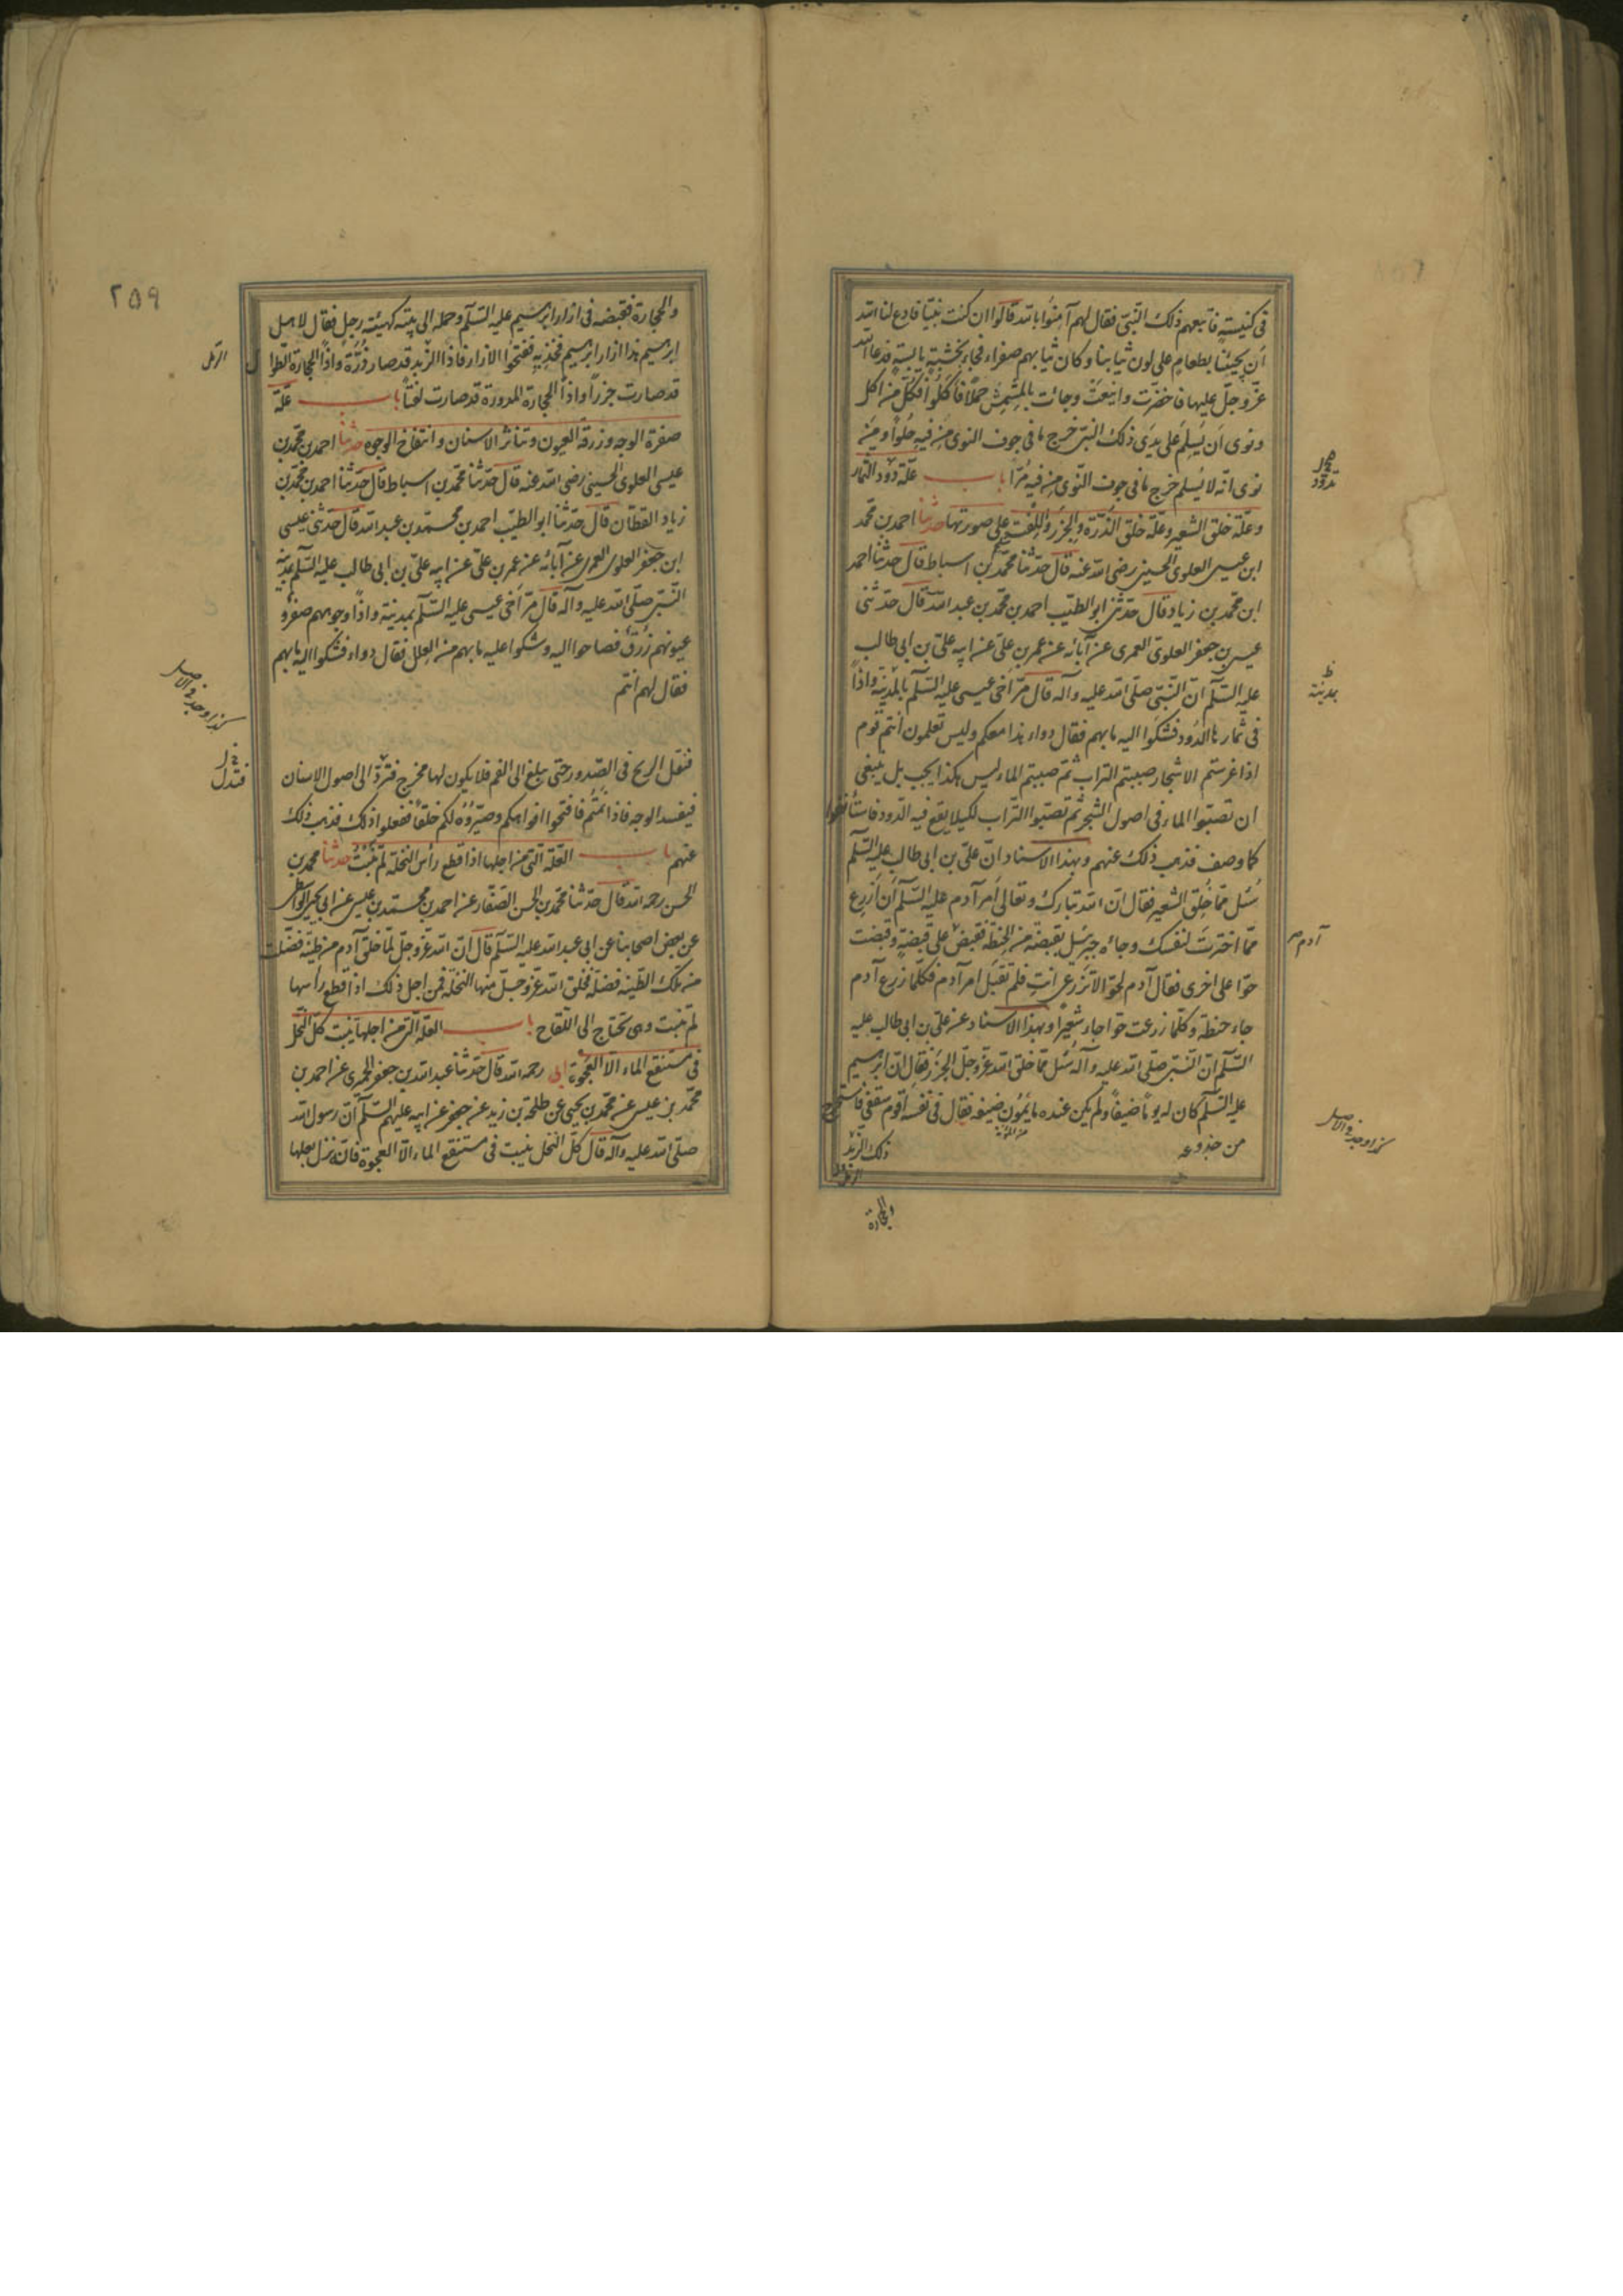 في كنيسته فاتبعهم ذلك النبيّ فقال لهم آمنوا بالله قالوا ان كنت نبيّا فادع لنا الله
أن يجيئنا بطعام على لون ثيابنا وكان ثيابهم صفراء فجاء بخشبة يابسة فدعا الله
عزّ وجلّ عليها فاخضرّت واينعت وجائت بالمشمش حملا فاكلوا فكلّ من اكل
ونوى ان يسلم على يدى ذلك النبيّ خرج ما في جوف النوى من فيه حلوا ومن
نوى انّه لا يسلم خرج ما في جوف النّوى من فيه مرّا باب علّة دود الثمار
وعلّة خلق الشعير وعلّة خلق الذّرّة والجزر واللّفت على صورتها حدثنا احمد بن محمّد
ابن عيسى العلوى الحسينى رضى الله عنه قال حدّثنا محمّد بن اسباط قال حدثنا احمد
ابن محمّد بن زياد قال حدّثنى ابو الطيّب احمد بن محمّد بن عبد الله قال حدّثنى
عيسى بن جعفر العلوىّ العمرى عن آبائه عن عمر بن علىّ عن ابيه علىّ بن ابى طالب
عليه السّلم انّ النّبىّ صلّى الله عليه وآله قال مرّ اخى عيسى عليه السّلم بالمدينة واذا
فى ثمارها الدّود فشكوا اليه ما بهم فقال دواء هذا معكم وليس تعلمون أنتم قوم
اذا غرستم الاشجار صببتم التراب ثمّ صببتم الماء ليس هكذا يجب بل ينبغى
ان تصبّوا الماء فى اصول الشجر ثم تصبّوا التراب لكيلا يقع فيه الدود فاستأنفوا
كما وصف فذهب ذلك عنهم وبهذا الاسناد انّ علىّ بن ابى طالب عليه السّلم
سئل ممّا خلق الشعير فقال انّ الله تبارك وتعالى أمر آدم عليه السّلم أن ازرع
ممّا اخترت لنفسك وجاءه جبرئيل بقبضة من الحنطة فقبض على قبضة وقبضت
حوّا على اخرى فقال آدم لحوّا لا تزرعى انت فلم تقبل امر آدم فكلّما زرع آدم
جاء حنطة وكلّما زرعت حوّا جاء شعيرا وبهذا الاسناد عن علىّ بن ابى طالب عليه
السّلم انّ النّبىّ صلّى الله عليه وآله سئل ممّا خلق الله عزّ وجلّ الجزر فقال انّ ابرهيم
عليه السّلم كان له يوما ضيفا ولم يكن عنده ما يمون ضيفه فقال فى نفسه أقوم سقفى فاستخرج
من المؤنة
من جذوعه ذلك الرّبد
والحجارة
تدوّد
ظ
بمدينة
آدم
كذا وجد فى الاصل
٢٥٩
والحجارة فقبضه فى ازار ابرهيم عليه السّلم وحمله الى بيته كهيئة رجل فقال لاهل
ابرهيم هذا ازار ابرهيم فخذيه ففتحوا الازار فاذا الرّبد قد صار ذرّة واذا الحجارة الطّوال
الرمل
قد صارت جزرا واذا الحجارة المدوّرة قد صارت لفتا باب علّة
صفرة الوجه وزرقة العيون وتناثر الاسنان وانتفاخ الوجوه حدثنا احمد بن محمّد بن
عيسى العلوى الحسينى رضى الله عنه قال حدّثنا محمّد بن اسباط قال حدّثنا احمد بن محمّد بن
زياد القطّان قال حدّثنا ابو الطيّب احمد بن محمّد بن عبد الله قال حدّثنى عيسى
ابن جعفر العلوى العمرى عن آبائه عن عمر بن علىّ عن ابيه علىّ بن ابى طالب عليه السّلم
النّبىّ صلّى الله عليه وآله قال مرّ أخى عيسى عليه السّلم بمدينة واذا وجوههم صفر و
عيونهم زرق فصاحوا اليه وشكوا عليه ما بهم من العلل فقال دواء فشكوا اليه ما بهم
فقال لهم أنتم
كذا وجد فى الاصل
فتقل الريح فى الصّدور حتى يبلغ الى الفم فلا يكون لها مخرج فتردّ الى اصول الاسنان
فيفسد الوجه فاذا نمتم فافتحوا افواهكم وصيّروه لكم خلقا ففعلوا ذلك فذهب ذلك
عنهم باب العلّة التى من اجلها اذا قطع رأس النخلة لم تنبت حدثنا محمد بن
الحسن رحمه الله قال حدّثنا محمّد بن الحسن الصّفّار عن احمد بن محمّد بن عيسى عن ابى يحيى الواسطى
عن بعض اصحابنا عن ابى عبد الله عليه السّلم قال انّ الله عزّ وجلّ لمّا خلق آدم من طينة فضلت
من تلك الطّينة فضلة فخلق الله عزّ وجلّ منها النخلة فمن اجل ذلك اذا قطع رأسها
لم تنبت وهى تحتاج الى اللّقاح باب العلّة التى من اجلها ينبت كلّ النّخل
فى مستنقع الماء الّا العجوة ابى رحمه الله قال حدّثنا عبد الله بن جعفر الحميرى عن احمد بن
محمّد بن عيسى عن محمّد بن يحيى عن طلحة بن زيد عن جعفر عن ابيه عليهم السّلم انّ رسول الله
صلّى الله عليه وآله قال كلّ النخل ينبت فى مستنقع الماء الّا العجوة فانّه نزل بعلها